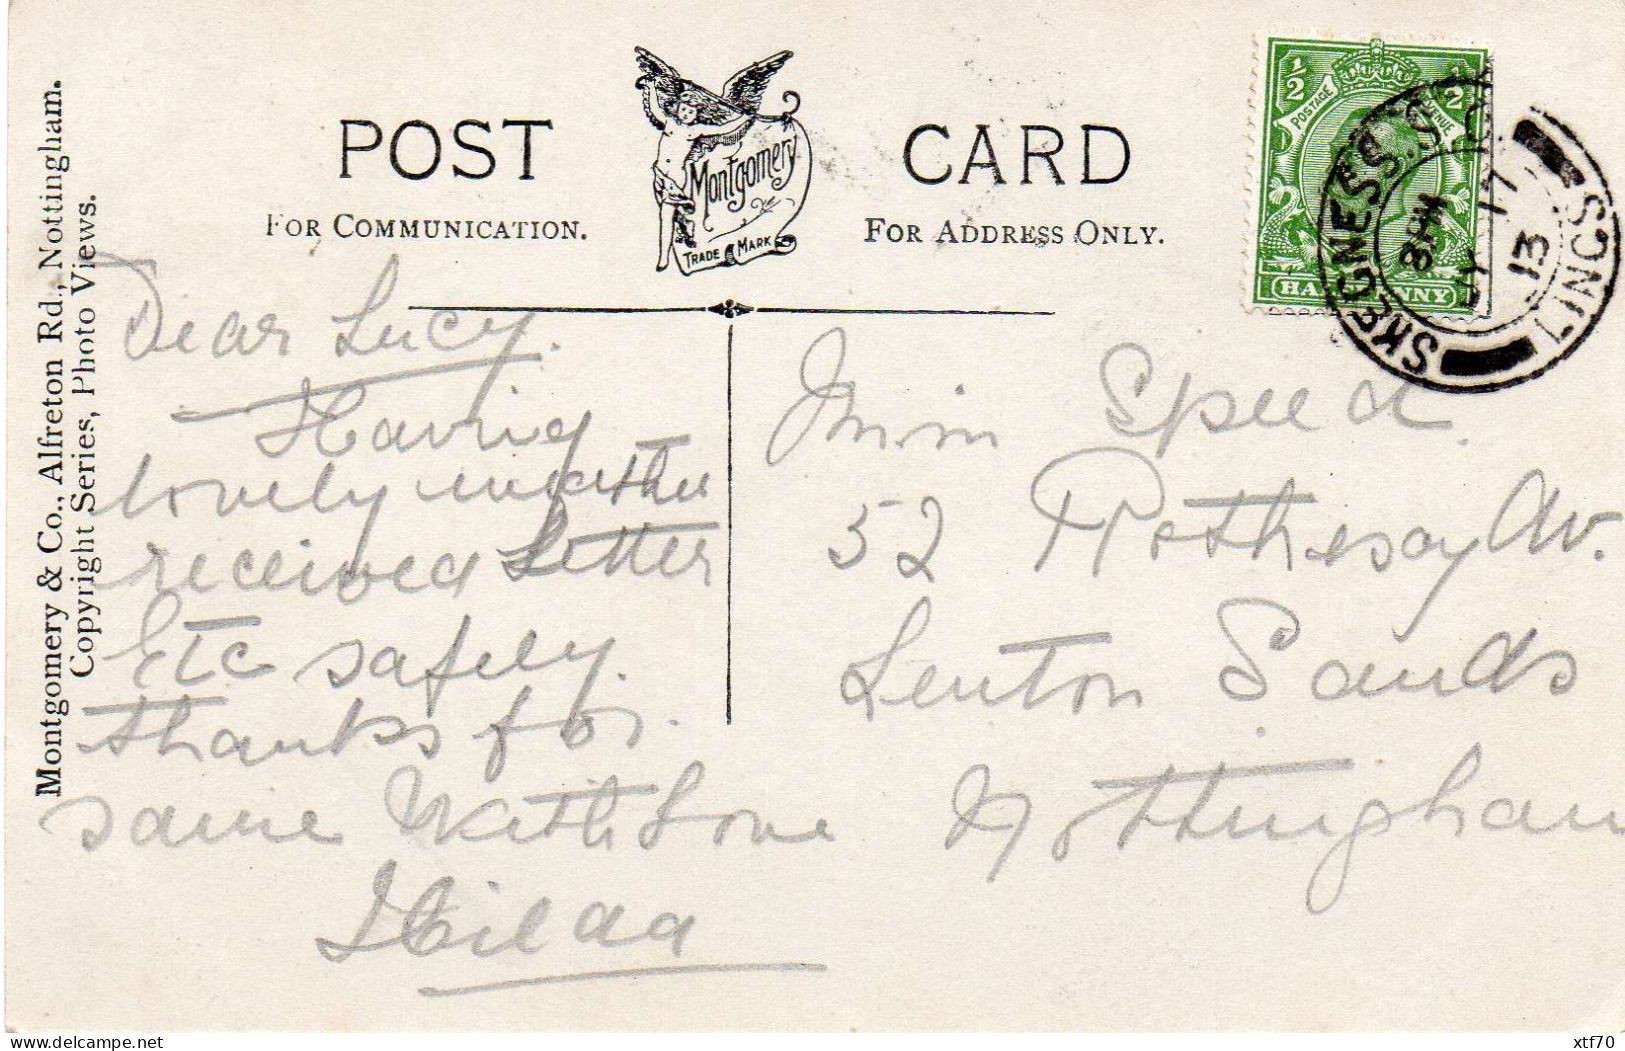 Montgomery & Co., Alfreton Rd., Nottingham.
Copyright Series, Photo Views.
POST CARD
Montgomery
TRADE MARK
FOR COMMUNICATION.
FOR ADDRESS ONLY.
1/2 1/2
POSTAGE REVENUE
HALFPENNY
SKEGNESS. S.O
8 PM
17
13
LINCS
Dear Lucy.
Having
lovely weather
received Letter
Etc safely.
thanks for.
same With Love
Hilda
Miss Speed.
52 Rothesay Av.
Lenton Sands
Nottingham
xtf70
delcampe.net